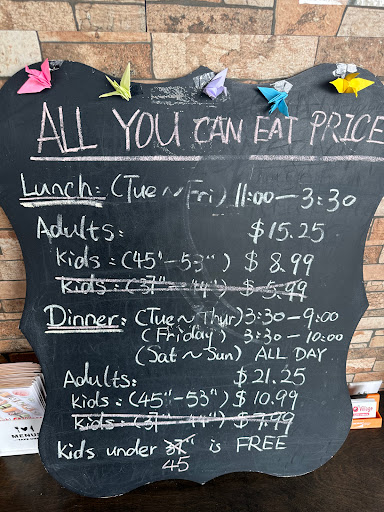 ALL YOU CAN EAT PRICE
Lunch: (Tue ~ Fri) 11:00 - 3:30
Adults: $15.25
Kids: (45" - 53") $8.99
Kids: (37" - 44") $5.99
Dinner: (Tue ~ Thur) 3:30 - 9:00
(Friday) 3:30 - 10:00
(Sat ~ Sun) ALL DAY
Adults: $21.25
Kids: (45" - 53") $10.99
Kids: (37" - 44") $7.99
Kids under 37" is FREE
45
MENUS